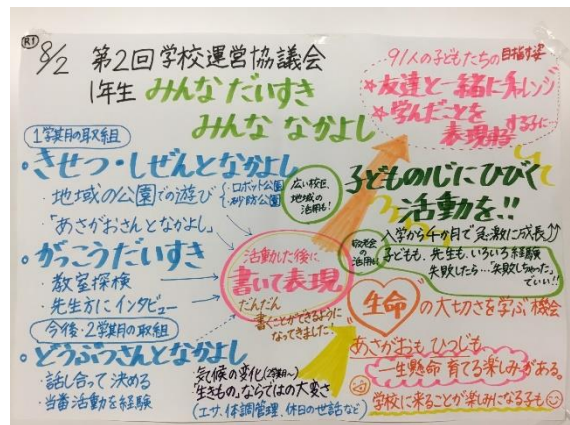 R1
8/2 第2回学校運営協議会
1年生 みんなだいすき
みんな なかよし
91人の子どもたちの目指す姿
☆友達と一緒にチャレンジ
☆学んだことを
表現する子に
1学期の取組
・きせつ・しぜんとなかよし
・地域の公園での遊び
・ロボット公園
・砂防公園
広い校区、
地域の
活用も!
・「あさがおさんとなかよし」
・がっこうだいすき
・教室探検
・先生方にインタビュー
今後・2学期の取組
・どうぶつさんとなかよし
・話し合って決める
・当番活動を経験
活動した後に
書いて表現
だんだん
書くことができるように
なってきました!
気候の変化(2学期〜)
「生きもの」ならではの大変さ
(エサ、体調管理、休日の世話など)
子どもの心にひびく
活動を!!
入学から4か月で急激に成長
の活用も
子どもも、先生も、いろいろ経験
失敗したら…"失敗しちゃった"
でいい!!
生命の大切さを学ぶ機会
あさがおも、ひつじも、
一生懸命育てる楽しみがある。
学校に来ることが楽しみになる子も